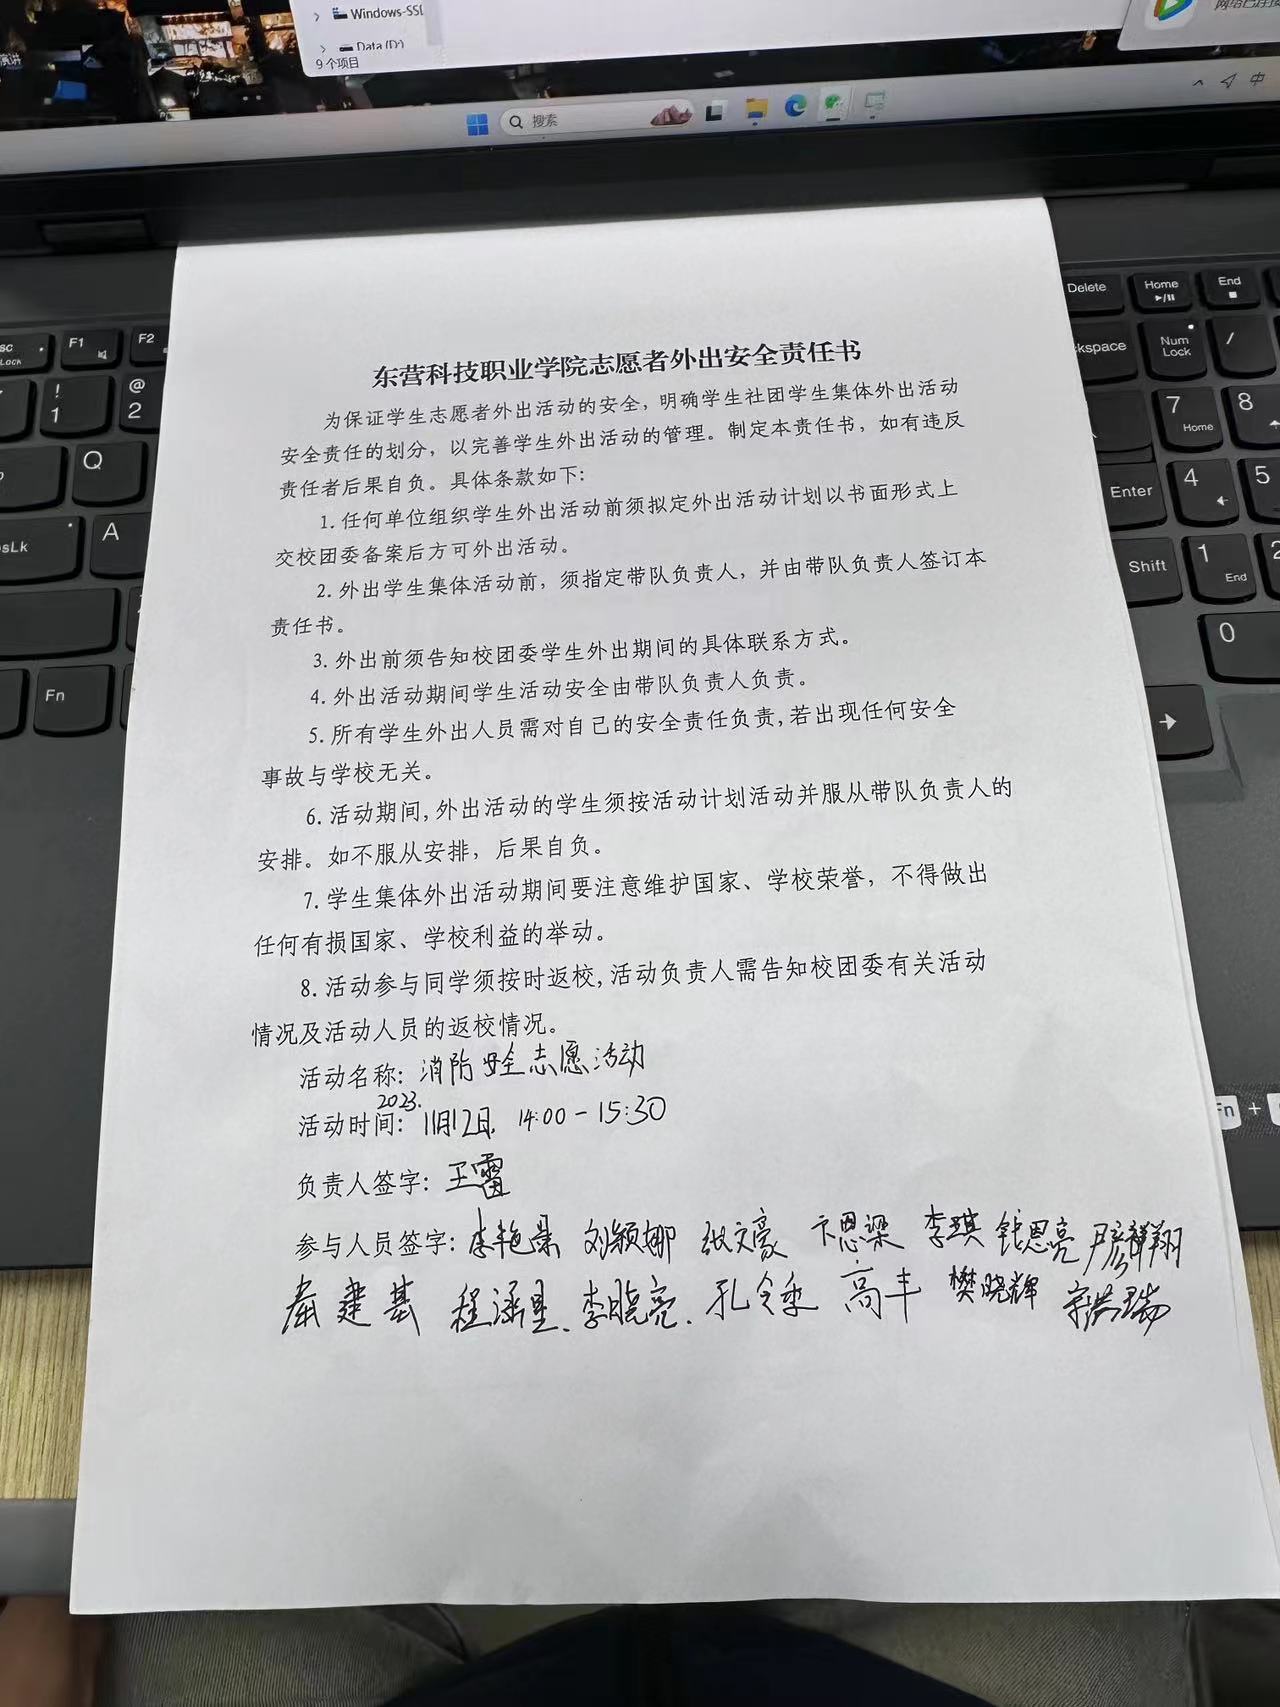 演讲
Windows-SSD
Data (D:)
9个项目
搜索
中
Delete
Home
End
F1
F2
Num
Lock
/
!
1
@
2
7
Home
8
Q
Enter
4
5
A
Shift
1
End
2
Fn
0
东营科技职业学院志愿者外出安全责任书
为保证学生志愿者外出活动的安全，明确学生社团学生集体外出活动
安全责任的划分，以完善学生外出活动的管理。制定本责任书，如有违反
责任者后果自负。具体条款如下：
1.任何单位组织学生外出活动前须拟定外出活动计划以书面形式上
交校团委备案后方可外出活动。
2.外出学生集体活动前，须指定带队负责人，并由带队负责人签订本
责任书。
3.外出前须告知校团委学生外出期间的具体联系方式。
4.外出活动期间学生活动安全由带队负责人负责。
5.所有学生外出人员需对自己的安全责任负责,若出现任何安全
事故与学校无关。
6.活动期间,外出活动的学生须按活动计划活动并服从带队负责人的
安排。如不服从安排，后果自负。
7.学生集体外出活动期间要注意维护国家、学校荣誉，不得做出
任何有损国家、学校利益的举动。
8.活动参与同学须按时返校,活动负责人需告知校团委有关活动
情况及活动人员的返校情况。
活动名称：消防安全志愿活动
活动时间：2023.11月12日，14:00-15:30
负责人签字：王雷
参与人员签字：李艳景 刘颖娜 张文豪 卞恩梁 李琪 钱恩亮 尹彦翔
秦建基 程涵星、李晓亮、孔令乘 高丰 樊晓辉 宗洪瑞
Fn +